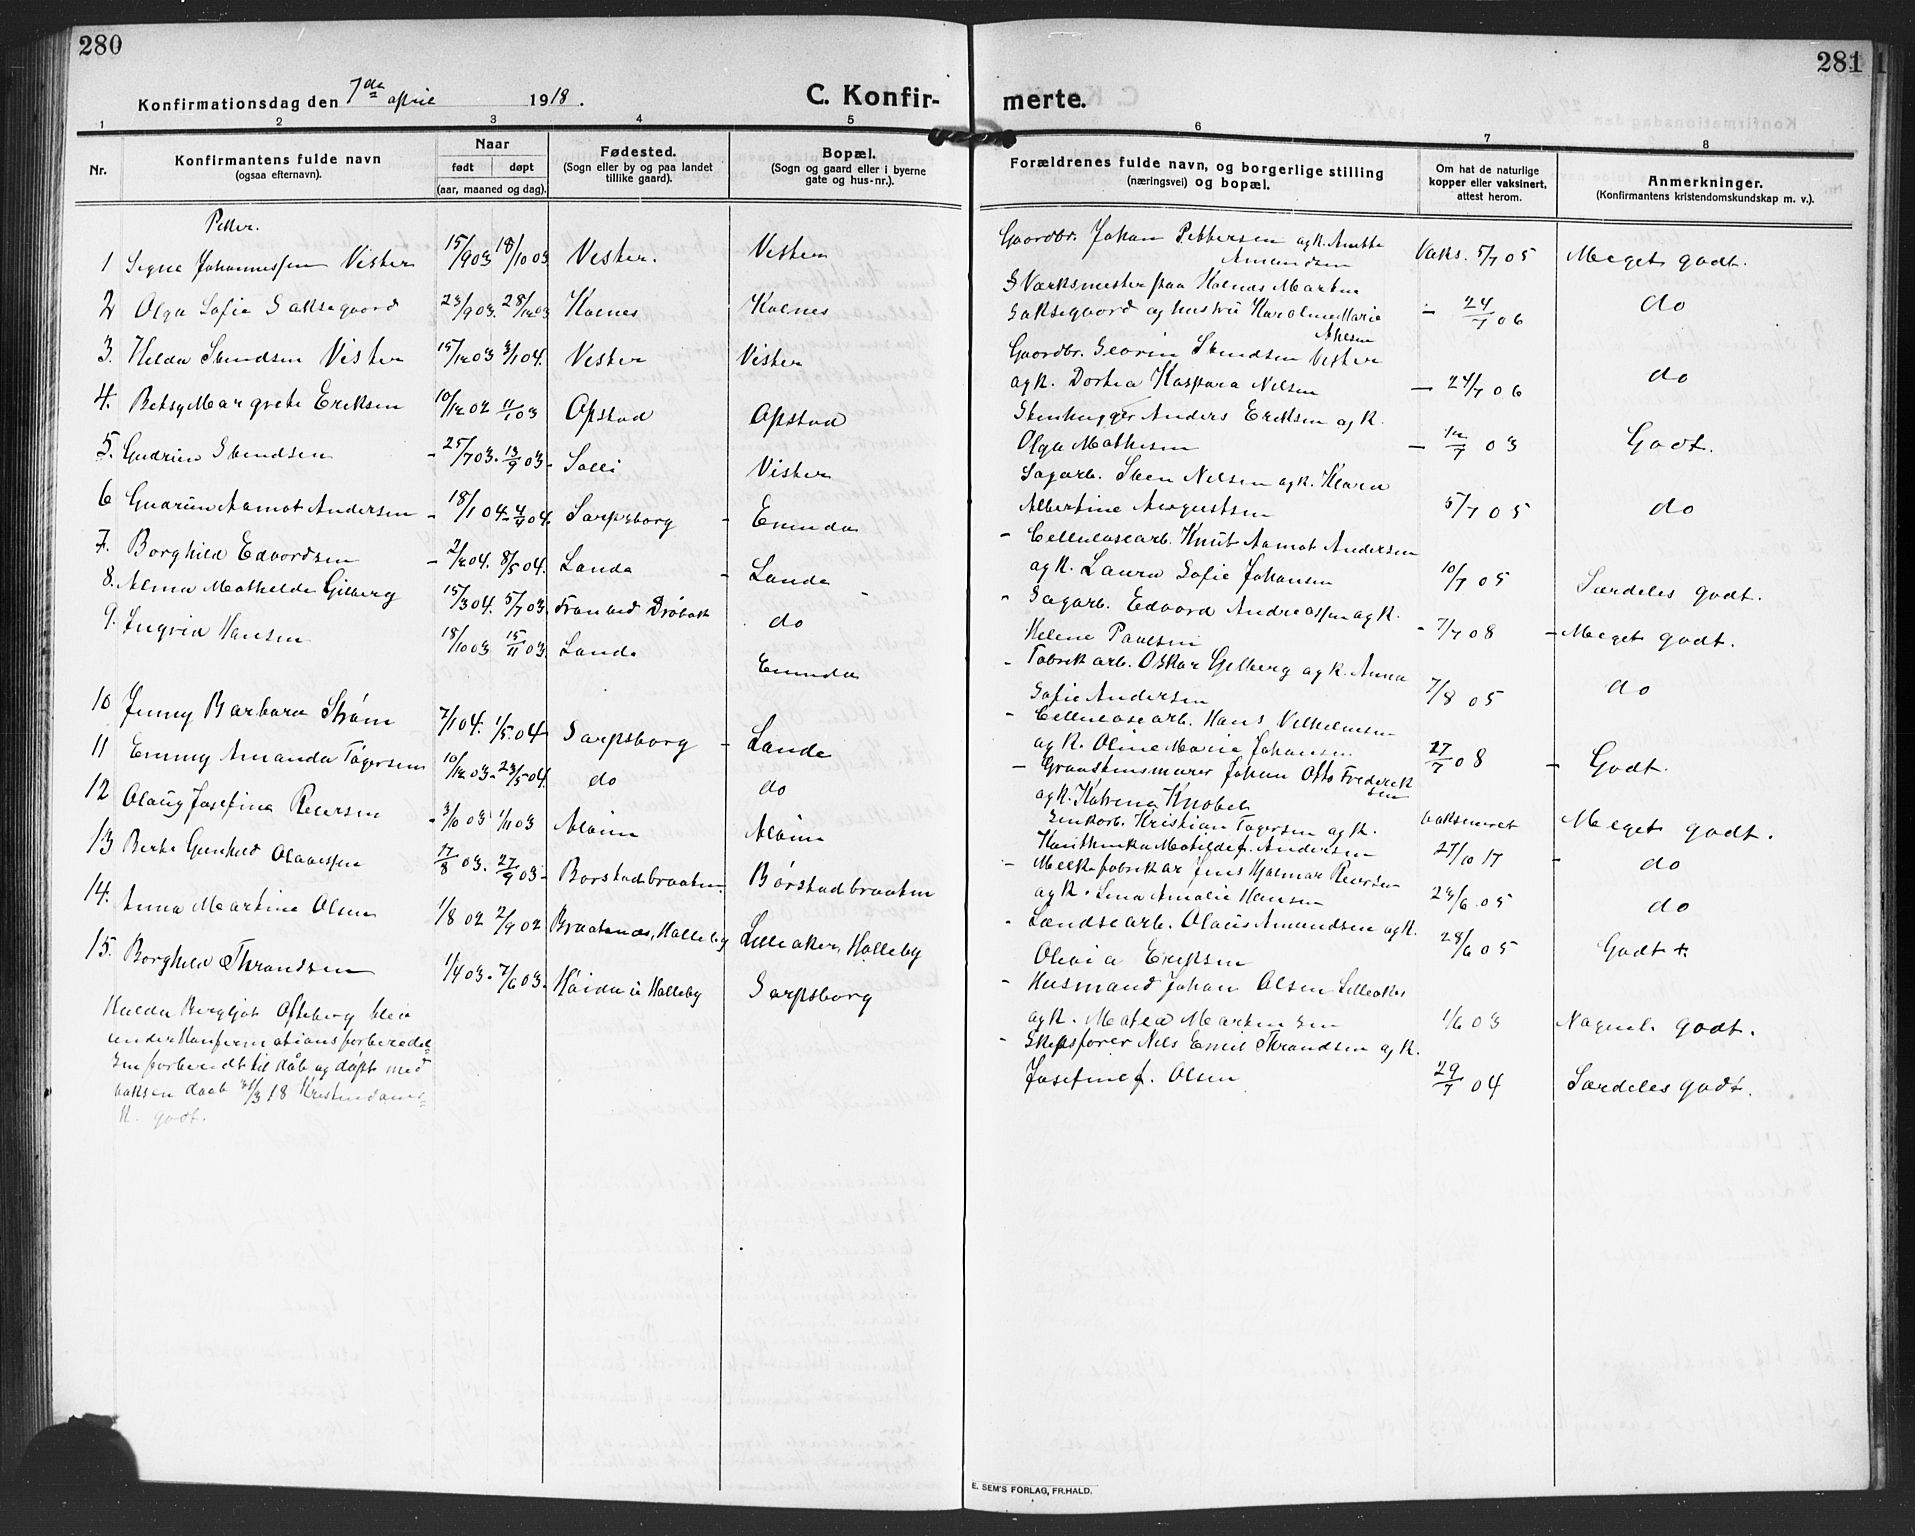 280
Konfirmationsdag den 7de april 1918.
C. Konfir-
1 2 3 4 5
Nr.
Konfirmantens fulde navn
(ogsaa efternavn).
Naar
født døpt
(aar, maaned og dag).
Fødested.
(Sogn eller by og paa landet
tillike gaard).
Bopæl.
(Sogn og gaard eller i byerne
gate og hus-nr.).
Piker.
1 Signe Johannessen Vister 15/9 03 18/10 03 Vister. Vister
2 Olga Sofie Saksegaard 23/9 03. 28/12 03 Kalnes Kalnes
3. Hilda Svendsen Vister 15/12 03 3/1 04. Vister Vister
4. Betsy Margrete Eriksen 10/12 02 11/1 03 Opstad Opstad
5. Gudrun Svendsen - 25/7 03. 13/9 03 - Solli Vister
6 Gudrun Aamot Andersen - 18/1 04 - 4/4 04. Sarpsborg - Enunda
7. Borghild Edvardsen - 2/12 04. 8/5 04. Lande - Lande
8. Alma Mathilde Gilberg 15/3 04. 5/7 03. Drøbak do
9. Ingrid Hansen 18/10 03 15/11 03. Lande Enunda
10 Jenny Barbara Strøm 7/1 04. 1/5 04 Sarpsborg - Lande
11 Emmy Amanda Tøgersen 10/12 03 - 23/5 04. do do
12 Olaug Josefine Reiersen - 3/10 03 1/11 03 Alvim Alvim
13 Berte Gunhild Olaussen 17/8 03. 27/9 03 - Borstadbraaten Børstadbraaten
14. Anna Martine Olsen 1/8 02 2/9 02 Braatenes, Halleby Lilleaker, Halleby
15. Borghild Thrandsen 1/4 03. 7/6 03. i Halleby Sarpsborg
Hulda Bergljot Ofteberg blev
under Konfirmationsforberedel=
sen forberedt til dåb og døpt med
voksen daab 31/3 18 Kristendoms=
k. godt.
281
merte.
6 7 8
Forældrenes fulde navn, og borgerlige stilling
(næringsvei) og bopæl.
Om hat de naturlige
kopper eller vaksinert,
attest herom.
Anmerkninger.
(Konfirmantens kristendomskundskap m. v.).
Gaardbr. Johan Pettersen og k. Anette
Amundsen Vaks. 5/7 05 Meget godt.
Værksmester paa Kalnes Martin
Saksegaard og hustru Karoline Marie - 24/7 06 do
Gaardbr. Svendsen Vister
og k. Dortea Kaspara Nilsen - 24/7 06 do
Stenhugger Anders Eriksen og k.
Olga Mathisen - 12/7 03 Godt.
Sagarb. Sven Nilsen og k. Klara
Albertine Augustsen 5/7 05 do
- Cellulosearb. Knut Aamot Andersen
og k. Laura Sofie Johansen 10/7 05 Særdeles godt.
- Sagarb. Edvard Andreassen og k.
Helene Paulsen - 7/7 08 - Meget godt.
- Fabrikarb. Oskar Gilberg og k. Anna
Sofie Andersen 7/8 05 do
- Cellulosearb. Hans Vilhelmsen
og k. Oline Marie Johansen 27/7 08 - Godt.
- Graastensmurer Johan Otto Frederik
sen
og k. Katrina Knobel vaksineret Meget godt.
Kristian Tøgersen og k.
Matilde f. Andersen 27/10 17 - do
- Melkefabrikar Jens Hjalmar Reiersen
og k. Lina Amalie Hansen 23/6 05 do
- Landsearb. Olaus Amundsen og k.
Olivia Eriksen 28/6 05 Godt +.
- Husmand Johan Olsen Lilleaker
og k. Matea 1/6 03 godt.
- Skipsfører Nils Emil Thrandsen og k.
Josefine f. Olsen 29/7 04 Særdeles godt.
E. SEM'S FORLAG, FR.HALD.